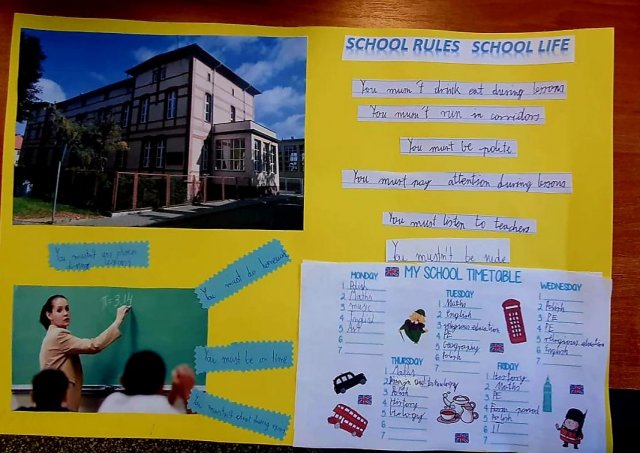 SCHOOL RULES SCHOOL LIFE
You musn't drink eat during lessons
You musn't run in corridors
You must be polite
You must pay attention during lessons
You must listen to teachers
You mustn't be rude
You mustn't use phones
lessons
You must do homework
π=3,14
You must be on time
You mustn't cheat during
MY SCHOOL TIMETABLE
MONDAY
1 Polish
2 Maths
3 music
4 English
5 Art
6
7
TUESDAY
1 Maths
2 English
3 religious education
4 PE
5 Geography
6 Polish
7
WEDNESDAY
1
2 Polish
3 PE
4 PE
5 religious education
6 English
7
THURSDAY
1 Maths
2
3 Polish
4 History
5 Biology
6
7
FRIDAY
1 History
2 Maths
3 PE
4 Form period
5 Polish
6
7